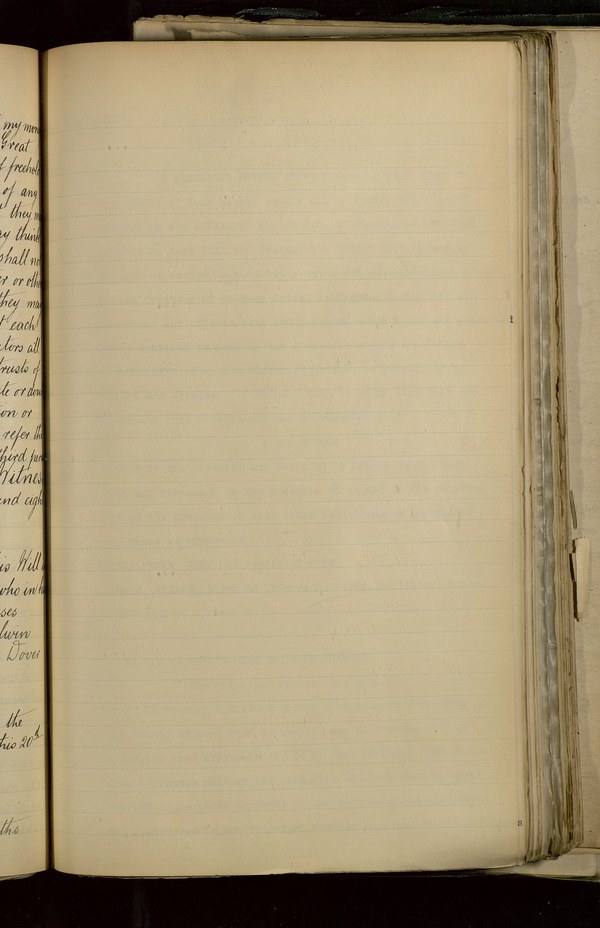 my mon
Great
freehol
of any
they m
ay think
shall no
er or oth
they ma
t each
tors all
trusts of
te or don
on or
refer th
third par
Witnes
and eigh
is Will
who in th
ses
lwin
Dover
the
this 20th
ths